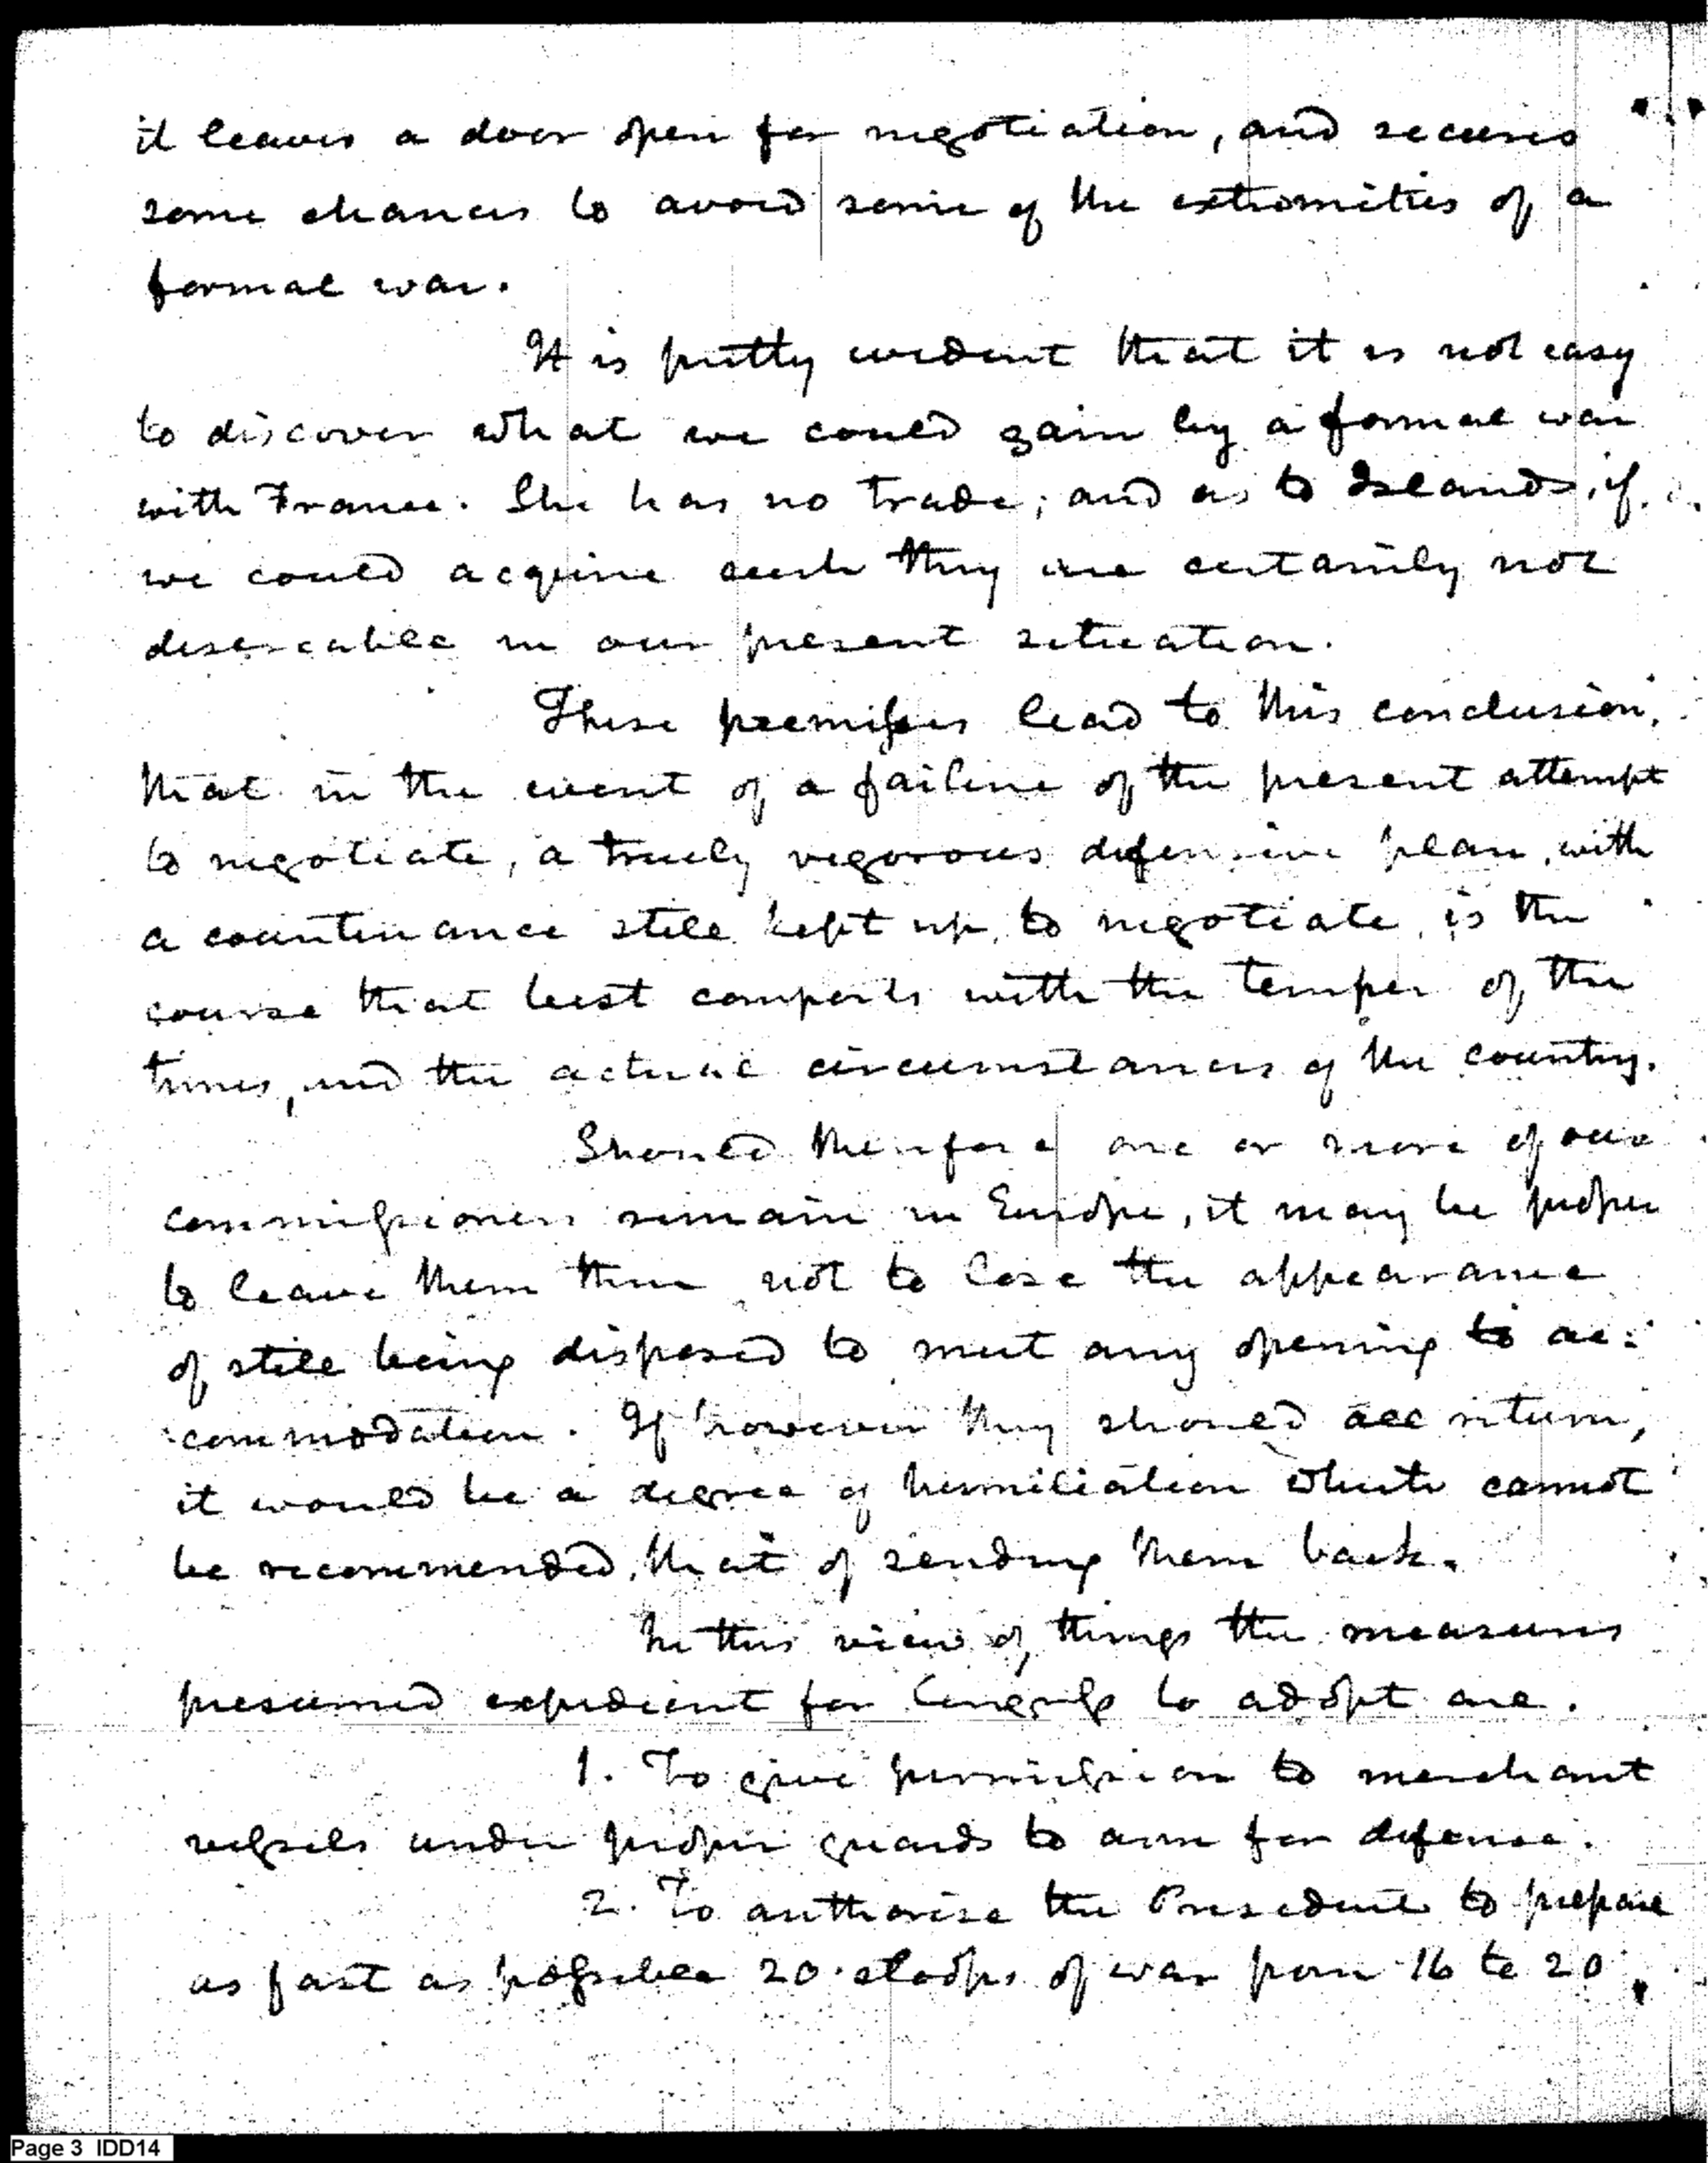 it leaves a door open for negotiation, and secures
some chances to avoid some of the extremities of a
formal war.
It is pretty evident that it is not easy
to discover what we could gain by a formal war
with France. She has no trade; and as to Islands, if
we could acquire such they are certainly not
desireable in our present situation.
These premisses lead to this conclusion,
that in the event of a failure of the present attempt
to negotiate, a truely vigorous defensive plan, with
a countenance still kept up, to negotiate, is the
course that best comports with the temper of the
times, and the actual circumstances of the country.
Should therefore one or more of our
commissioners remain in Europe, it may be proper
to leave them there not to lose the appearance
of still being disposed to meet any opening to ac:
commodation. If however they should all return,
it would be a degree of humiliation which cannot
be recommended, that of sending them back.
In this view of things the measures
presumed expedient for Congress to adopt are.
1. To give permission to merchant
vessels under proper guards to arm for defense.
2. To authorise the President to prepare
as fast as possible 20 sloops of war from 16 to 20
Page 3 IDD14